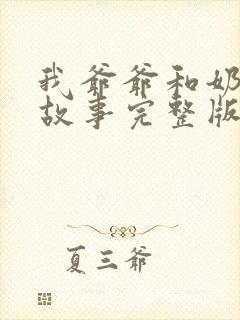 我爷爷和奶
故事完整版
夏三爷